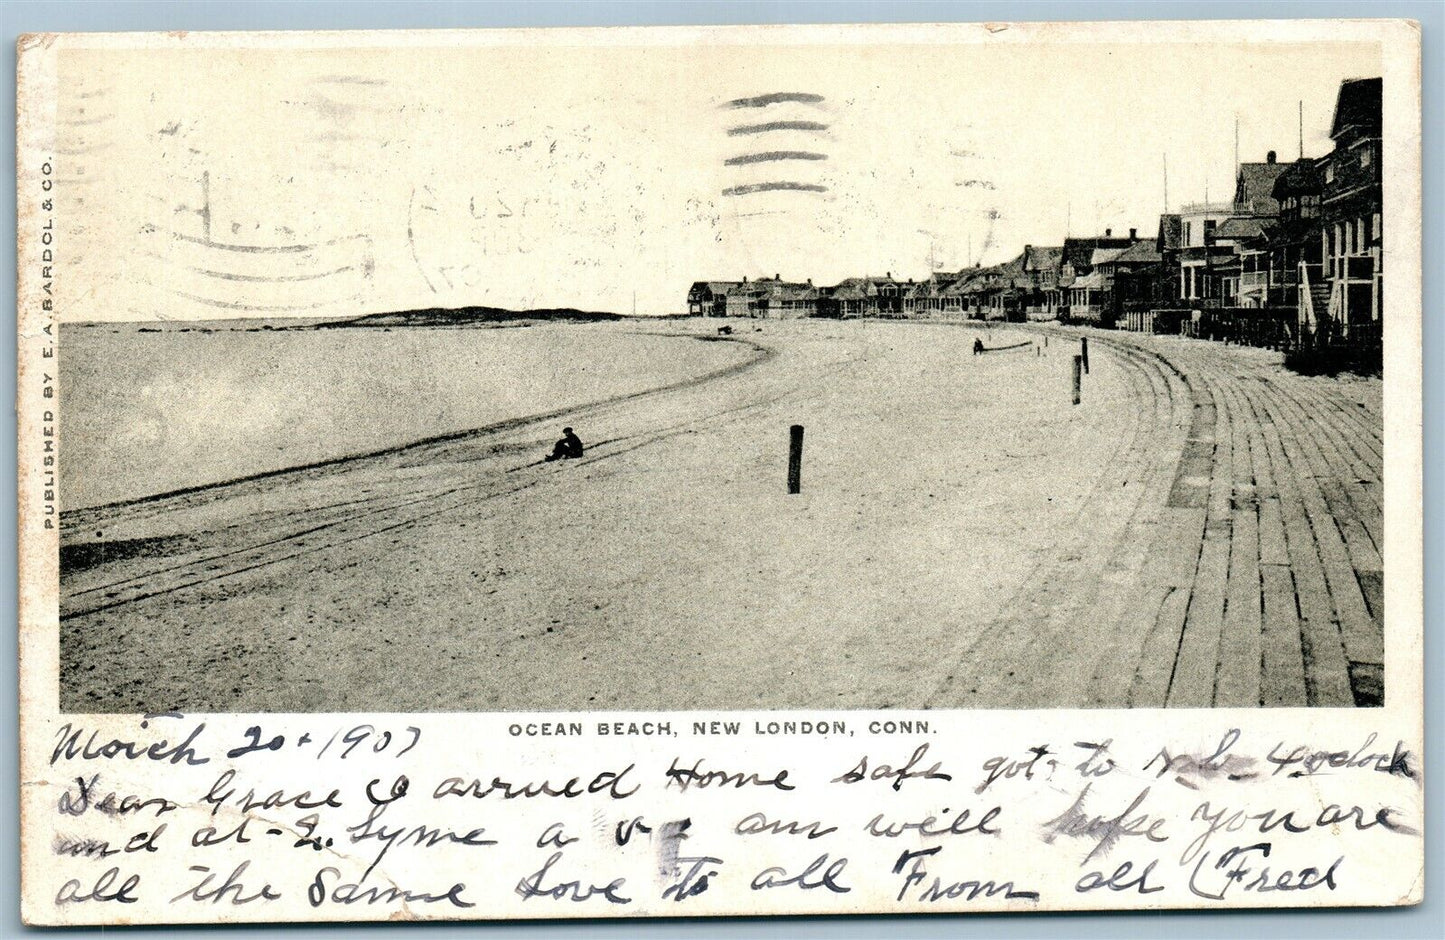 PUBLISHED BY E. A. BARDOL & CO.
OCEAN BEACH, NEW LONDON, CONN.
March 20 + 1907
Dear Grace I arrived Home safe got to N. L. 4 oclock
and at - L. Lyme a 5 am well hope you are
all the Same Love to all From all (Fred